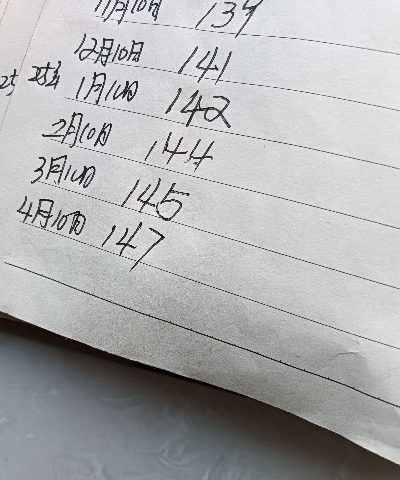 11月10日 139
12月10日 141
25年 1月10日 142
2月10日 144
3月10日 145
4月10日 147